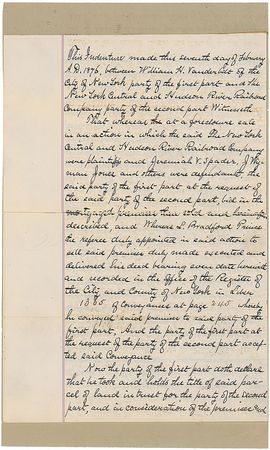 This Indenture made this seventh day of February
A.D. 1876, between William H. Vanderbilt of the
City of New York party of the first part and The
New York Central and Hudson River Railroad
Company party of the second part Witnesseth
That whereas at a foreclosure sale
in an action in which the said The New York
Central and Hudson River Railroad Company
were plaintiffs and Jeremiah V. Spader, J. Wy-
man Jones and others were defendants, the
said party of the first part at the request of
the said party of the second part, bid in the
mortgaged premises then sold and hereinafter
described and Whereas L. Bradford Prince
the referee duly appointed in said action to
sell said premises duly made executed and
delivered his deed bearing even date herewith
and recorded in the office of the Register of
the City and County of New York in Liber
1385 of conveyances at page 245 whereby
he conveyed said premises to said party of the
first part, And the party of the first part at
the request of the party of the second part accep-
ted said Conveyance
Now the party of the first part doth declare
that he took and holds the title of said par-
cel of land in trust for the party of the second
part, and in consideration of the premises and